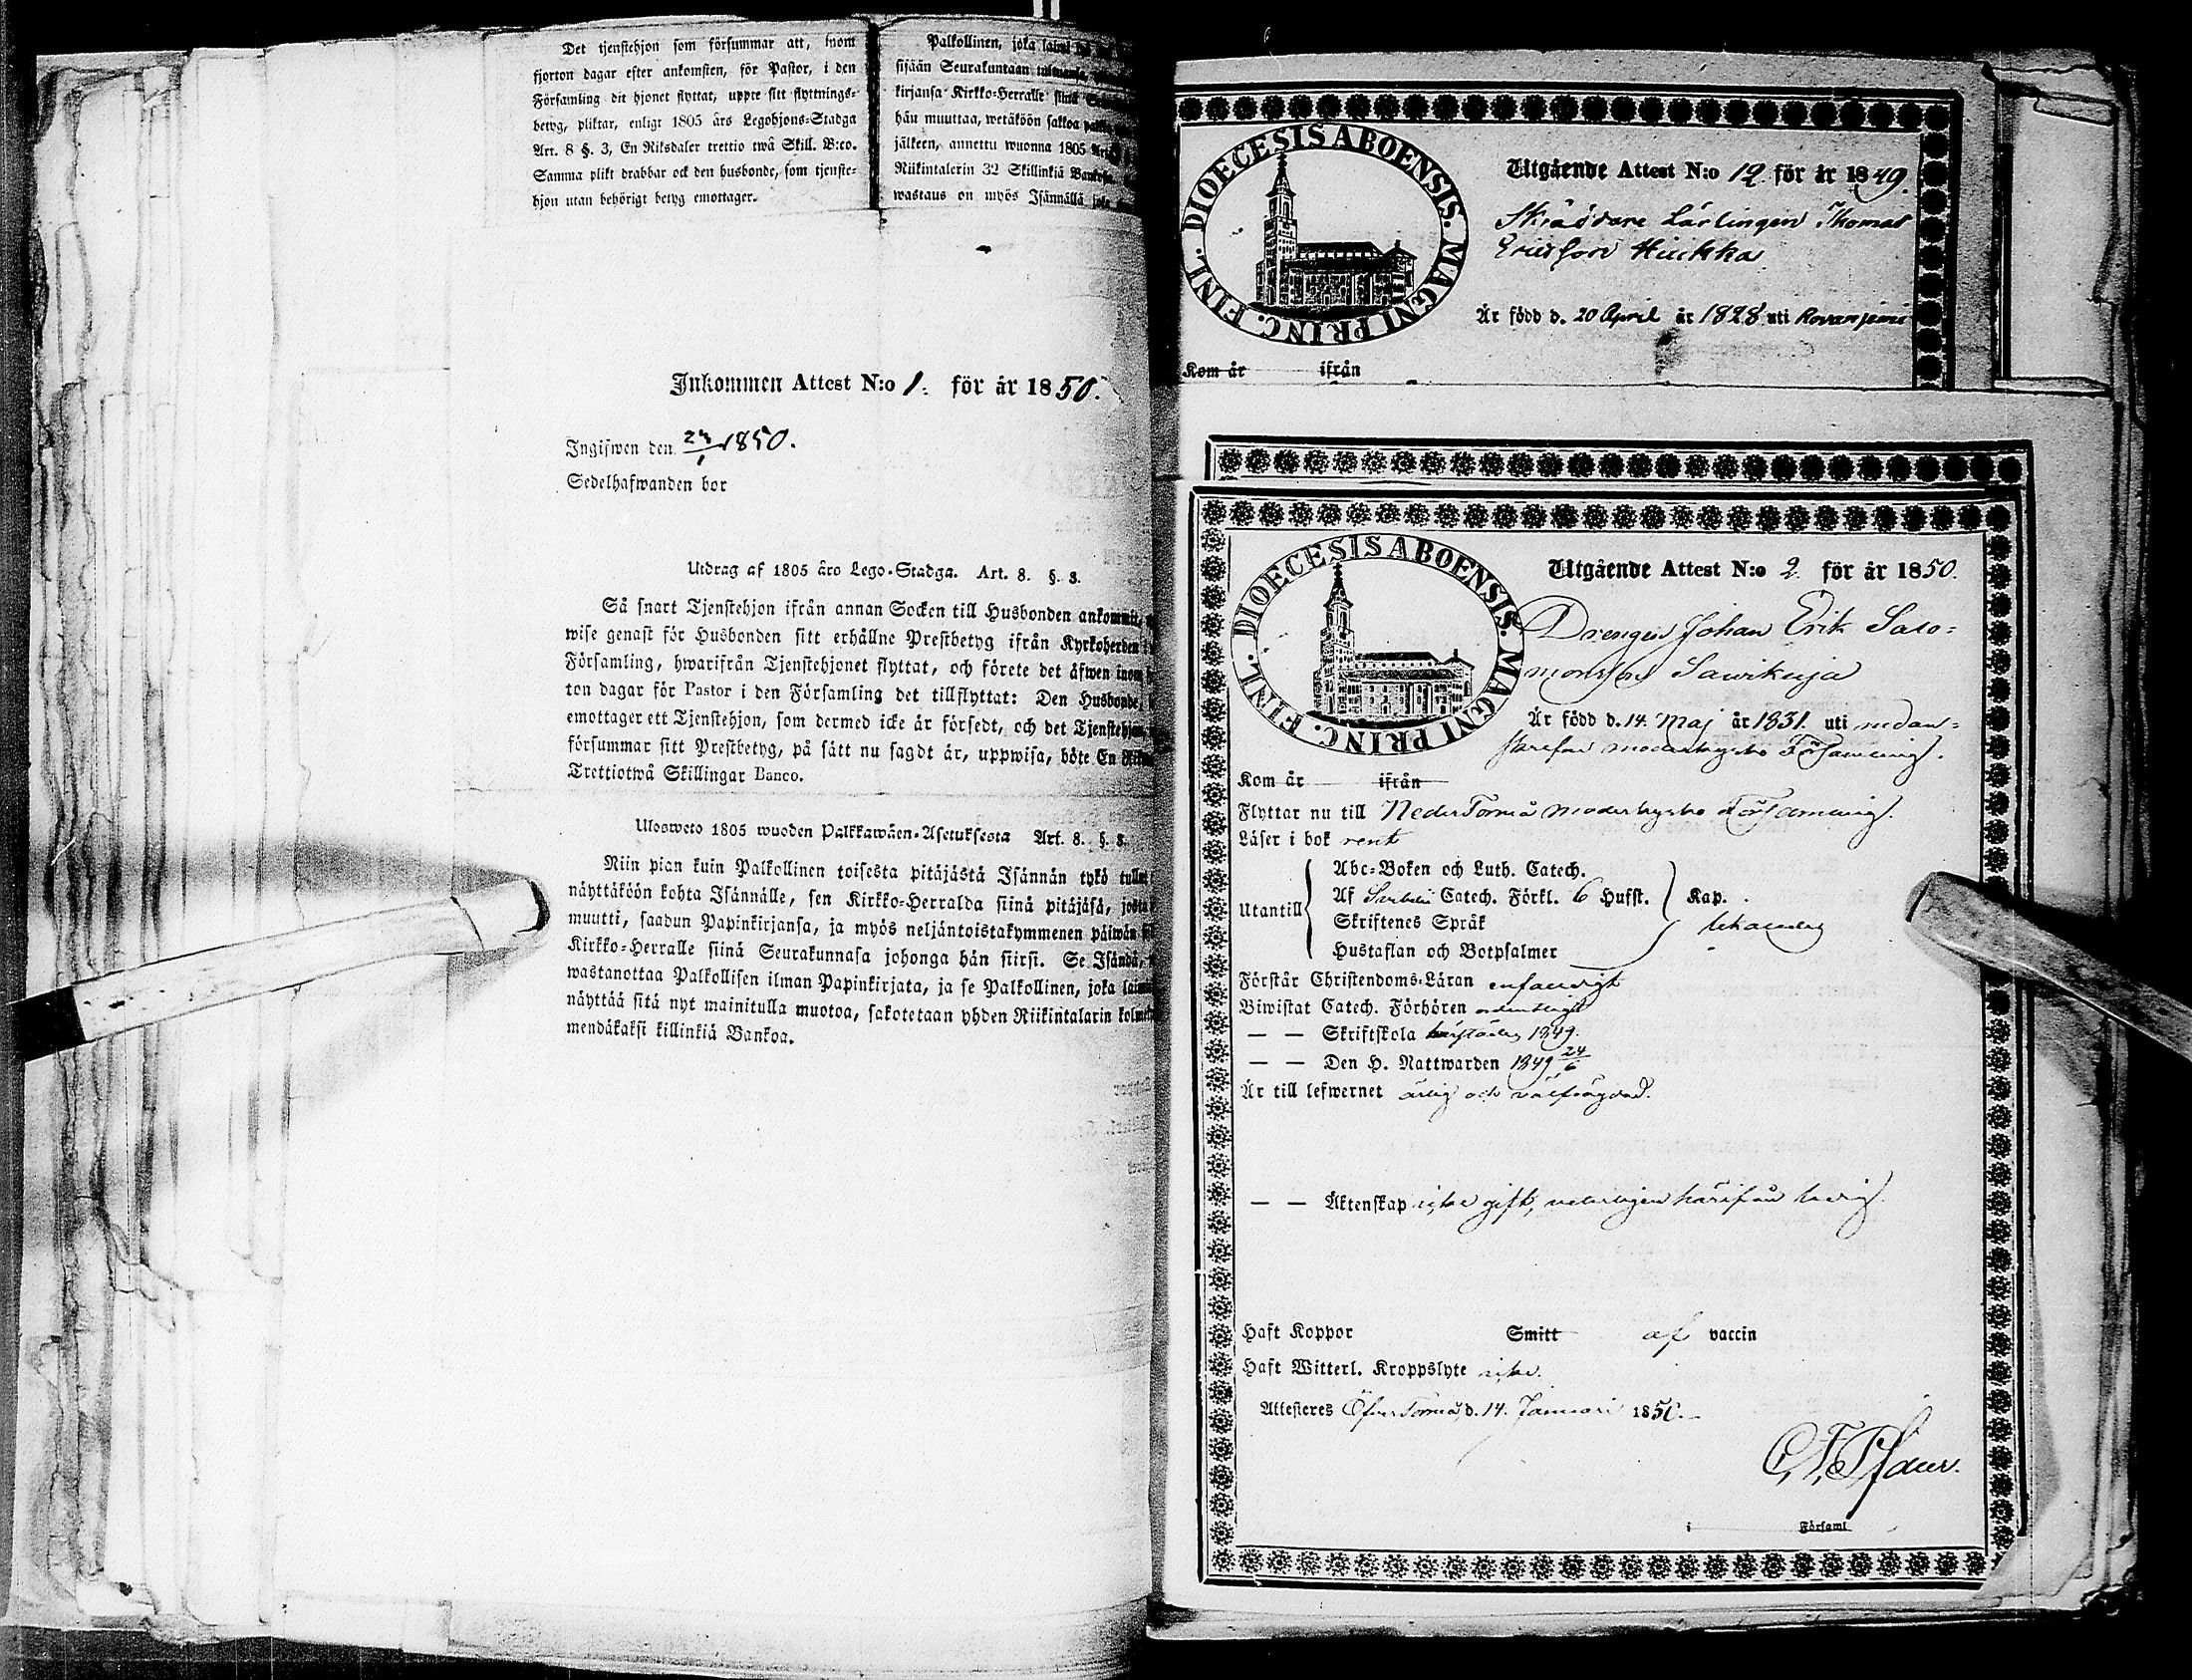 Det tjenstehjon som försummar att, inom
fjorton dagar efter ankomsten, för Pastor, i den
Församling dit hjonet flyttat, uppte sitt flyttnings-
betyg, pliktar, enligt 1805 års Legohjons-Stadga
Art. 8 §. 3, En Riksdaler trettio twå Skill. B:co.
Samma plikt drabbar ock den husbonde, som tjenste-
hjon utan behörigt betyg emottager.
Palkollinen, joka laimi
sijään Seurakuntaan tulemansa
kirjansa Kirkko-Herralle siinä
hän muuttaa, wetäköön sakkoa
jälkeen, annettu wuonna 1805
Riikintalerin 32 Skillinkiä Bankos
wastaus on myös Isännällä joka
Inkommen Attest N:o 1. för år 1850.
Ingifwen den 23/1 1850.
Sedelhafwanden bor
Utdrag af 1805 års Lego-Stadga. Art. 8. §. 3.
Så snart Tjenstehjon ifrån annan Socken till Husbonden ankommit,
wise genast för Husbonden sitt erhållne Prestbetyg ifrån Kyrkoherden i
Församling, hwarifrån Tjenstehjonet flyttat, och förete det äfwen inom
ton dagar för Pastor i den Församling det tillflyttat: Den Husbonde,
emottager ett Tjenstehjon, som dermed icke är försedt, och det Tjenstehjon,
försummar sitt Prestbetyg, på sätt nu sagdt är, uppwisa, böte En
Trettiotwå Skillingar Banco.
Ulosweto 1805 wuoden Palkkawäen-Asetuksesta Art. 8. §. 3.
Niin pian kuin Palkollinen toisesta pitäjästä Isännän tykö
näyttäköön kohta Isännälle, sen Kirkko-Herralda siinä pitäjäsä, josta
muutti, saadun Papinkirjansa, ja myös neljäntoistakymmenen päiwän
Kirkko-Herralle siinä Seurakunnasa johonga hän siirsi. Se Isändä,
wastanottaa Palkollisen ilman Papinkirjata, ja se Palkollinen, joka
näyttää sitä nyt mainitulla muotoa, sakotetaan yhden Riikintalarin
mendäkaksi killinkiä Bankoa.
DIOECESIS ABOENSIS. MAGNI PRINC. FINL.
Utgående Attest N:o 12. för år 1849.
Skräddare Lärlingen Thomas
Ericsson Hiukka
Är född d. 20 April år 1828 uti Rovaniemi
Kom år ifrån
DIOECESIS ABOENSIS. MAGNI PRINC. FINL.
Utgående Attest N:o 2. för år 1850.
Drengen Johan Erik Salo-
monsson Saurikuja
Är född d. 14. Maj år 1831. uti nedan-
skrefne moderkyrko Församling.
Kom år ifrån
Flyttar nu till NederTorneå moderkyrko Församling.
Läser i bok rent
Utantill
Abc-Boken och Luth. Catech.
Af Catech. Förkl. 6 Hufst.
Skriftenes Språk
Hustaflan och Botpsalmer
Kap.
Förstår Christendoms-Läran enfaldigt
Biwistat Catech. Förhören ordentligt
— — Skriftskola 1849.
— — Den H. Nattwarden 1849 24/6
Är till lefwernet ärlig och välfrägdad.
— — Äktenskap icke gift, härifrån ledig.
Haft Koppor Smitt af vaccin
Haft Witterl. Kroppslyte icke.
Attesteres ÖfverTorneå d. 14. Januari 1850.
i Församl